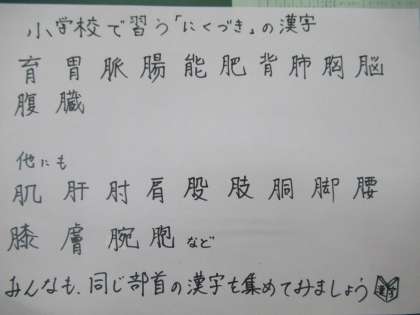 小学校で習う「にくづき」の漢字
育 胃 脈 腸 能 肥 背 肺 胸 脳
腹 臓
他にも
肌 肝 肘 肩 股 肢 胴 脚 腰
膝 膚 腕 胞 など
みんなも、同じ部首の漢字を集めてみましょう
漢字